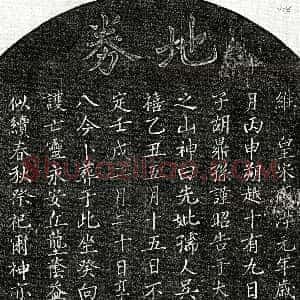 地劵
維皇宋咸淳元年歲
月丙申朔越十有九日
子胡鼎孫謹昭告于大
之山神曰先妣孺人吳
禧乙丑月十五日不
定壬戌月二十日
八今卜葬于此坐癸向
護亡靈永安丘壟蔭益
似續春秋祭祀爾神亦